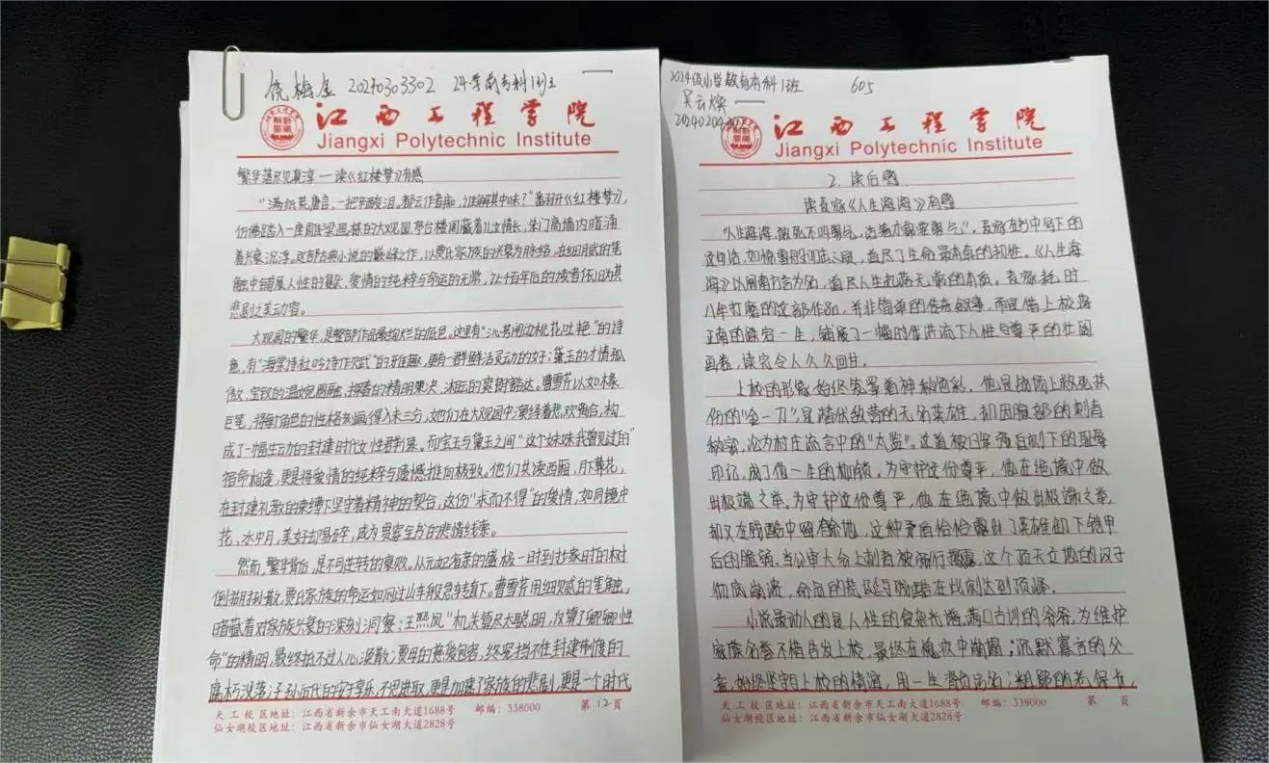 饶梅金 20240303302 24学前专科1班
江西工程学院
Jiangxi Polytechnic Institute
繁华落尽见真淳——读《红楼梦》有感
"满纸荒唐言，一把辛酸泪。都云作者痴，谁解其中味？"翻开《红楼梦》，
仿佛踏入一座雕梁画栋的大观园，亭台楼阁藏着儿女情长，朱门高墙内暗涌
着兴衰沉浮。这部古典小说的巅峰之作，以贾氏家族的兴衰为脉络，在细腻的笔
触中铺展人性的复杂、爱情的纯粹与命运的无常，让千百年后的读者依旧为其
悲剧之美动容。
大观园的繁华，是整部作品最绚烂的底色。这里有"沁芳闸边桃花吐艳"的诗
意，有"海棠诗社吟诗作赋"的雅趣，更有一群鲜活灵动的女子：黛玉的才情孤
傲，宝钗的温婉圆融，探春的精明果决，湘云的豪爽豁达。曹雪芹以如椽
巨笔，将每个角色的性格刻画得入木三分，她们在大观园中演绎着悲欢离合，构
成了一幅生动的封建时代女性群像。而宝玉与黛玉之间"这个妹妹我曾见过的"
宿命相逢，更是将爱情的纯粹与遗憾推向极致。他们共读西厢，月下葬花，
在封建礼教的束缚下坚守着精神的契合，这份"求而不得"的爱情，如同镜中
花、水中月，美好却易碎，成为贯穿全书的悲情线索。
然而，繁华背后，是不可逆转的衰败。从元妃省亲的盛极一时到抄家时的树
倒猢狲散，贾氏家族的命运如同过山车般急转直下。曹雪芹用细腻的笔触，
暗藏着对家族兴衰的深刻洞察：王熙凤"机关算尽太聪明，反算了卿卿性
命"的精明，最终抵不过人心涣散；贾母的慈爱包容，终究挡不住封建制度的
腐朽没落；子孙后代的安于享乐、不思进取，更是加速了家族的悲剧，更是一个时代
天工校区地址：江西省新余市天工南大道1688号 邮编：338000 第12页
仙女湖校区地址：江西省新余市仙女湖大道2828号
2024级小学教育本科1班 605
吴云焕
江西工程学院
Jiangxi Polytechnic Institute
2. 读后感
读麦家《人生海海》有感
"人生海海，敢死不叫勇气，活着才需要勇气"，麦家在书中写下的
这句话，如惊雷般
道尽了生命最本真的韧性。《人生海
海》以闽南方言为名，道尽人生起落无常的本质。麦家耗时
八年打磨的这部作品，并非简单的传奇叙事，而是借上校蒋
正南的跌宕一生，铺展了一幅时代洪流下人性与尊严的壮阔
画卷，读完令人久久回甘。
上校的形象始终笼罩着神秘色彩，他是战场上救死扶
伤的"金一刀"，是潜伏敌营的无名英雄，却因腹部的刺青
秘密，沦为村庄流言中的"太监"。这道被日军强迫刻下的耻辱
印记，成了他一生的枷锁，为守护这份尊严，他在绝境中做
出极端之举。为守护这份尊严，他在绝境中做出极端之举，
却又在残酷中
这种矛盾恰恰露出了英雄卸下铠甲
后的脆弱。当公审大会上刺青被强行揭露，这个顶天立地的汉子
彻底崩溃，命运的荒诞与残酷在此刻达到顶峰。
小说最动人的是人性的复杂光谱，满口古训的爷爷，为维护
家族名誉不惜告发上校，最终在愧疚中
沉默寡言的父
亲，始终坚守与上校的情谊，用一生
天工校区地址：江西省新余市天工南大道1688号 邮编：338000 第 页
仙女湖校区地址：江西省新余市仙女湖大道2828号